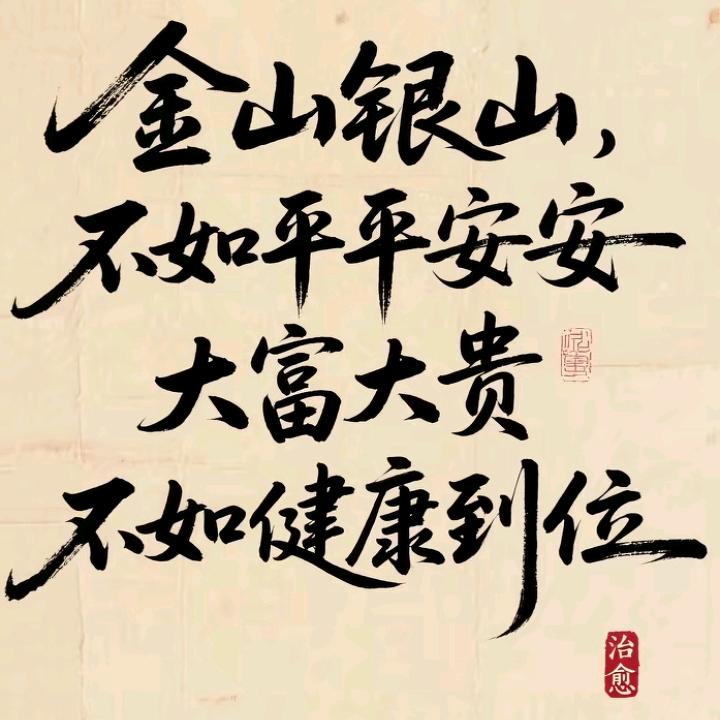 金山银山，
不如平平安安
大富大贵
不如健康到位
治愈